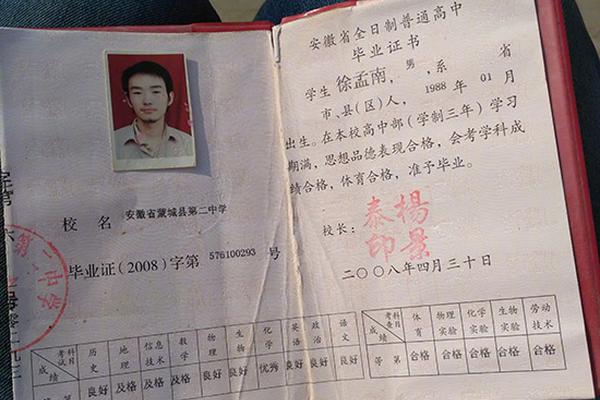 校名 安徽省蒙城县第二中学
毕业证(2008)字第 576100293 号
第二中学
考试科目 成绩 历史 地理 信息技术 数学 物理 生物 化学 英语 政治 语文
良好 及格 及格 及格 良好 良好 优秀 良好 良好 良好
安徽省全日制普通高中
毕业证书
学生 徐孟南,男,系 省
市、县(区)人,1988年01月
出生。在本校高中部(学制三年)学习
期满,思想品德表现合格,会考学科成
绩合格,体育合格,准予毕业。
校长: 楊景泰印
二〇〇八年四月三十日
考查科目 成绩 体育 物理实验 化学实验 生物实验 劳动技术
等第 合格 合格 合格 合格 合格